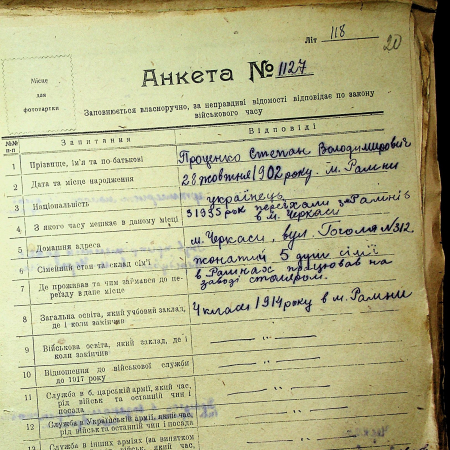 Літ 118
20
Місце
для
фотокартки
Анкета № 1127
Заповнюється власноручно, за неправдиві відомості відповідає по закону
військового часу
№№ п-п Запитання Відповіді
1 Прізвище, ім'я та по-батькові Проценко Степан Володимирович
2 Дата та місце народження 28 жовтня 1902 року. м. Ромни
3 Національність українець
4 З якого часу мешкає в даному місці З 1935 рок переїхали з
в м. Черкаси
5 Домашня адреса м. Черкаси, вул. Гоголя № 312
6 Сімейний стан та склад сім'ї жонатий 5 душ сім'ї
7 Де проживав та чим займався до переїзду в дане місце в Ромнах працював на
заводі столяром.
8 Загальна освіта, який учбовий заклад,
де і коли закінчив 4 класи 1914 року в м. Ромни
9 Військова освіта, який заклад, де і
коли закінчив — " —
10 Відношення до військової служби
до 1917 року — " —
11 Служба в б. царській армії, який час,
рід військ та останній чин і
посада — " —
12 Служба в Українській армії, який час,
рід військ та останній чин і посада — " —
13 Служба в інших арміях (за винятком
військ, який час,